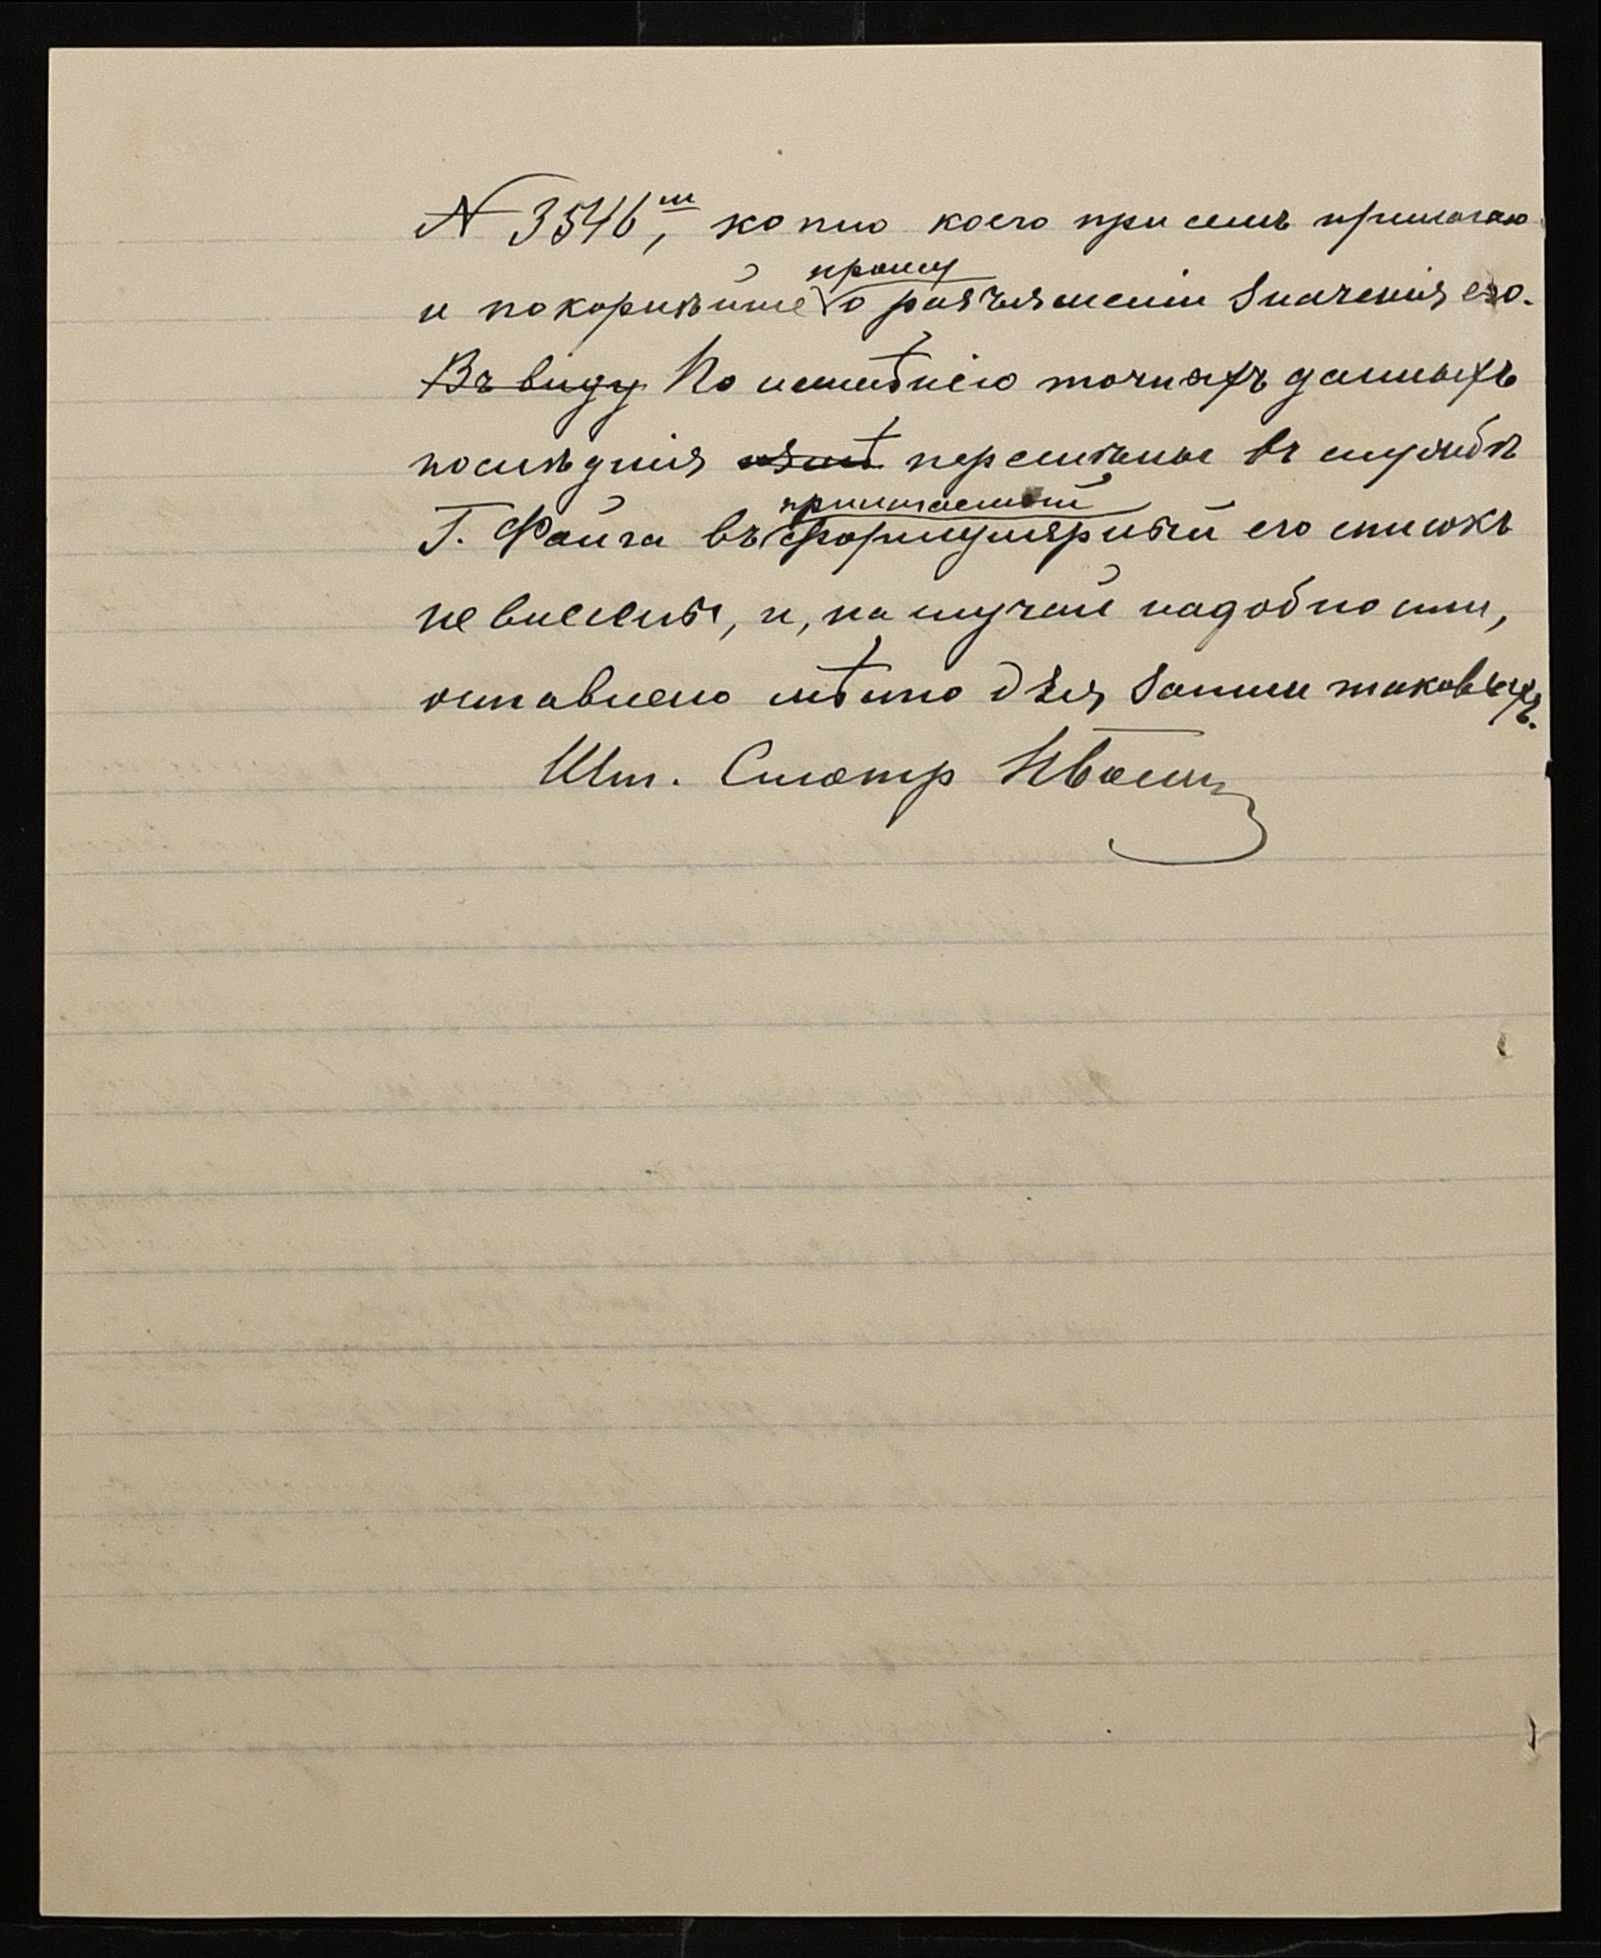 № 3546 м, копию коего при семъ прилагаю
прошу
и покорнѣйше о разъясненіи значенія его.
Въ виду По неимѣнію точныхъ данныхъ
послѣднія перемѣны въ службѣ
прилагаемый
Г. Файга въ формулярный его списокъ
не внесены, и, на случай надобности,
оставлено мѣсто для записи таковыхъ.
Шт. Смотр